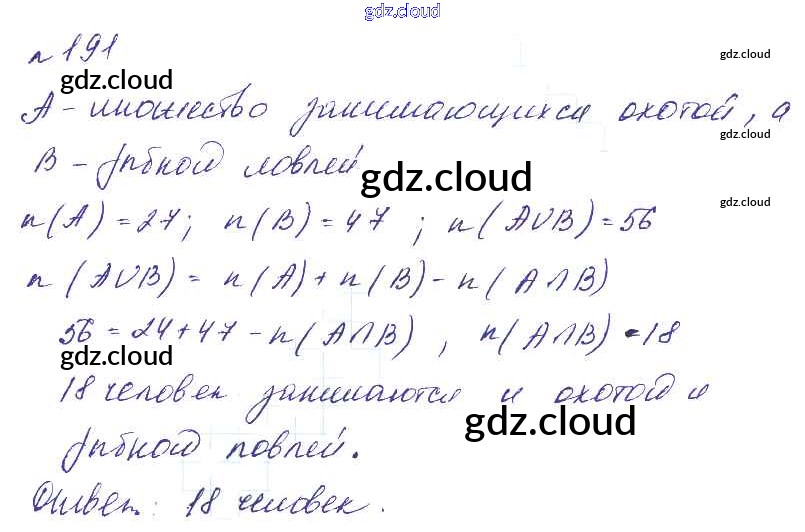 gdz.cloud
n 191
gdz.cloud
gdz.cloud
А - множество занимающихся охотой, а
gdz.cloud
В - рыбной ловлей
gdz.cloud
gdz.cloud
n(A) = 27; n(B) = 47; n(A∪B) = 56
n(A∪B) = n(A) + n(B) - n(A∩B)
56 = 24 + 47 - n(A∩B), n(A∩B) = 18
gdz.cloud
gdz.cloud
18 человек занимаются и охотой и
gdz.cloud
рыбной ловлей.
Ответ: 18 человек.
gdz.cloud